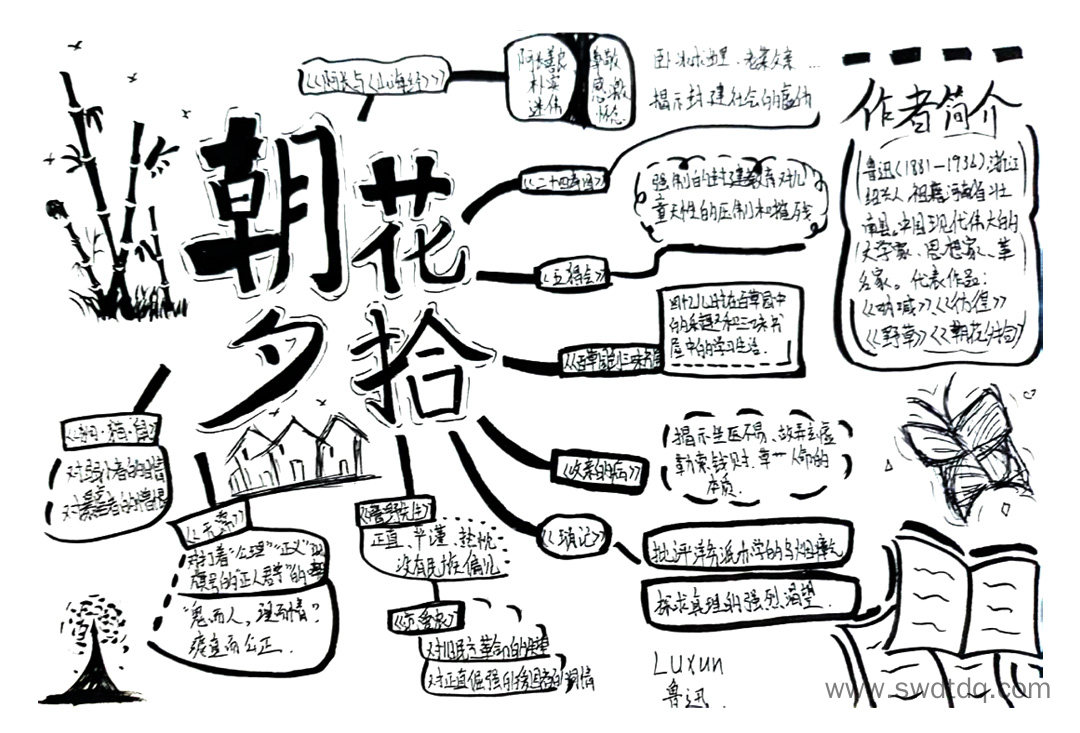 朝花
夕拾
《阿长与《山海经》》
阿长善良
朴实
迷信
尊敬
感激
怀念
卧冰求鲤、老莱娱亲…
揭示封建社会的虚伪
《二十四孝图》
强制的封建教育对儿
童天性的压制和摧残
《五猖会》
在百草园中
的乐趣和三味书
屋中的学习生活.
揭示坐医不易、故弄玄虚
勒索钱财、草菅人命的
本质.
《父亲的病》
《琐记》
批评洋务派办学的乌烟瘴气
探求真理的强烈渴望.
《狗·猫·鼠》
对弱小者的同情
对暴虐者的憎恨
《无常》
对打着“公理”“正义”
旗号的“正人君子”的
“鬼而人，理而情”
爽直而公正.
《藤野先生》
正直、严谨、热忱
没有民族偏见
《范爱农》
对旧民主革命的失望
对正直倔强的范爱农的同情
作者简介
鲁迅(1881-1936).浙江
绍兴人,祖籍河南省汝
南县。中国现代伟大的
文学家、思想家、革
命家。代表作品:
《呐喊》、《彷徨》
《野草》《朝花夕拾》
Luxun
鲁迅.
www.swdtdq.com